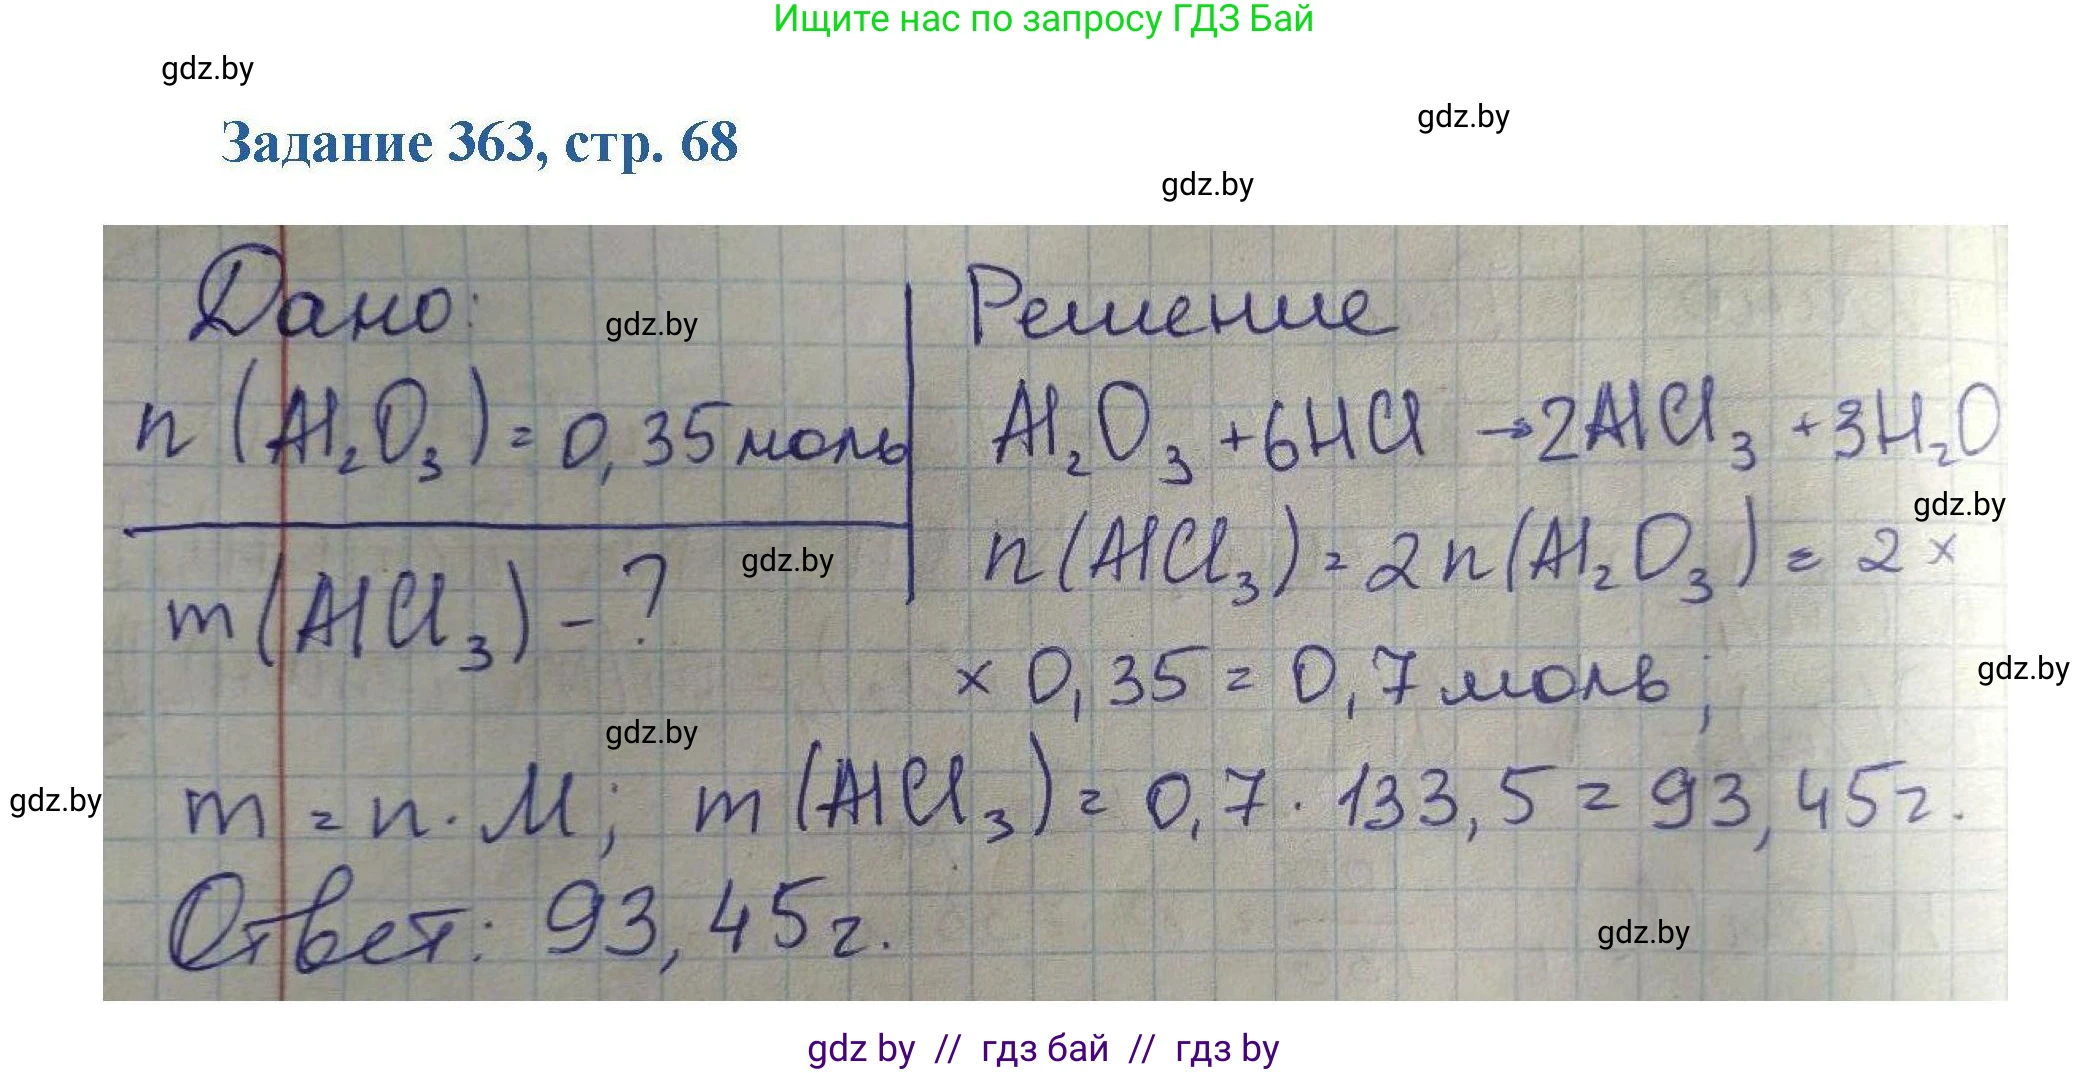 Ищите нас по запросу ГДЗ Бай
gdz.by
gdz.by
Задание 363, стр. 68
gdz.by
Дано:
gdz.by
Решение
n(Al₂O₃) = 0,35 моль
Al₂O₃ + 6HCl → 2AlCl₃ + 3H₂O
gdz.by
m(AlCl₃) - ?
gdz.by
n(AlCl₃) = 2n(Al₂O₃) = 2 ×
× 0,35 = 0,7 моль;
gdz.by
gdz.by
gdz.by
m = n · M; m(AlCl₃) = 0,7 · 133,5 = 93,45 г.
Ответ: 93,45 г.
gdz.by
gdz by // гдз бай // гдз by